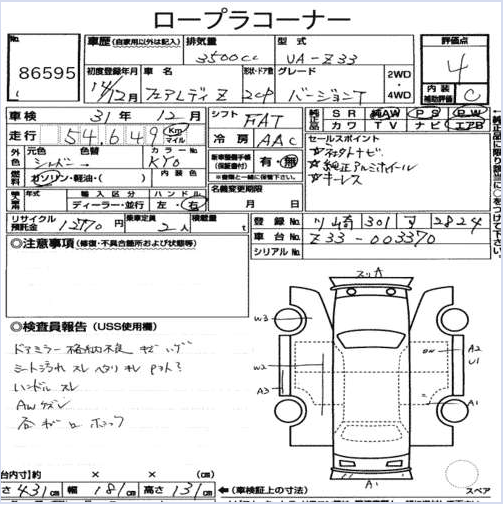 ロープラコーナー
86595
車歴 (自家用以外は記入) 排気量 型式 評価点
3500cc UA-Z33 4
初度登録年月 車名 形状・ドア数 グレード 2WD 内装 補助評価
14/12月 フェアレディZ 2CP バージョンT 4WD C
車検 31年 12月 シフト FAT 純正品 SR 純AW PS PW
カワ TV ナビ エアB
走行 54,649 Km マイル 冷房 AAC セールスポイント
外色 元色 色替 カラーNo.
シルバー KY0 新車整備手帳(保証書付) 有・無 ☆純正アルミホイール
燃料 ガソリン・軽油・( ) 内装色 ※書類と一緒に保管して下さい ☆キーレス
輸入車 年式 輸入区分 ハンドル 名義変更期限
ディーラー・並行 左・右 月 日
リサイクル預託金 12770円 乗車定員 2人 積載量 t 登録No. 川崎 301 す 2824
◎注意事項 (修復・不具合箇所および状態等) 車台No. Z33-003370
シリアルNo.
純正品に限り該当に○をつけて下さい。
スリA
◎検査員報告 (USS使用欄)
W3
ドアミラー格納不良 キズ ハゲ W2 A2
シート汚れ スレ ヘタリ キレ U1
ハンドル スレ A3
AWキズ A1
A1
台内寸)約 × × (cm)
さ 431cm 幅 181cm 高さ 131cm ←(車検証上の寸法) スペア